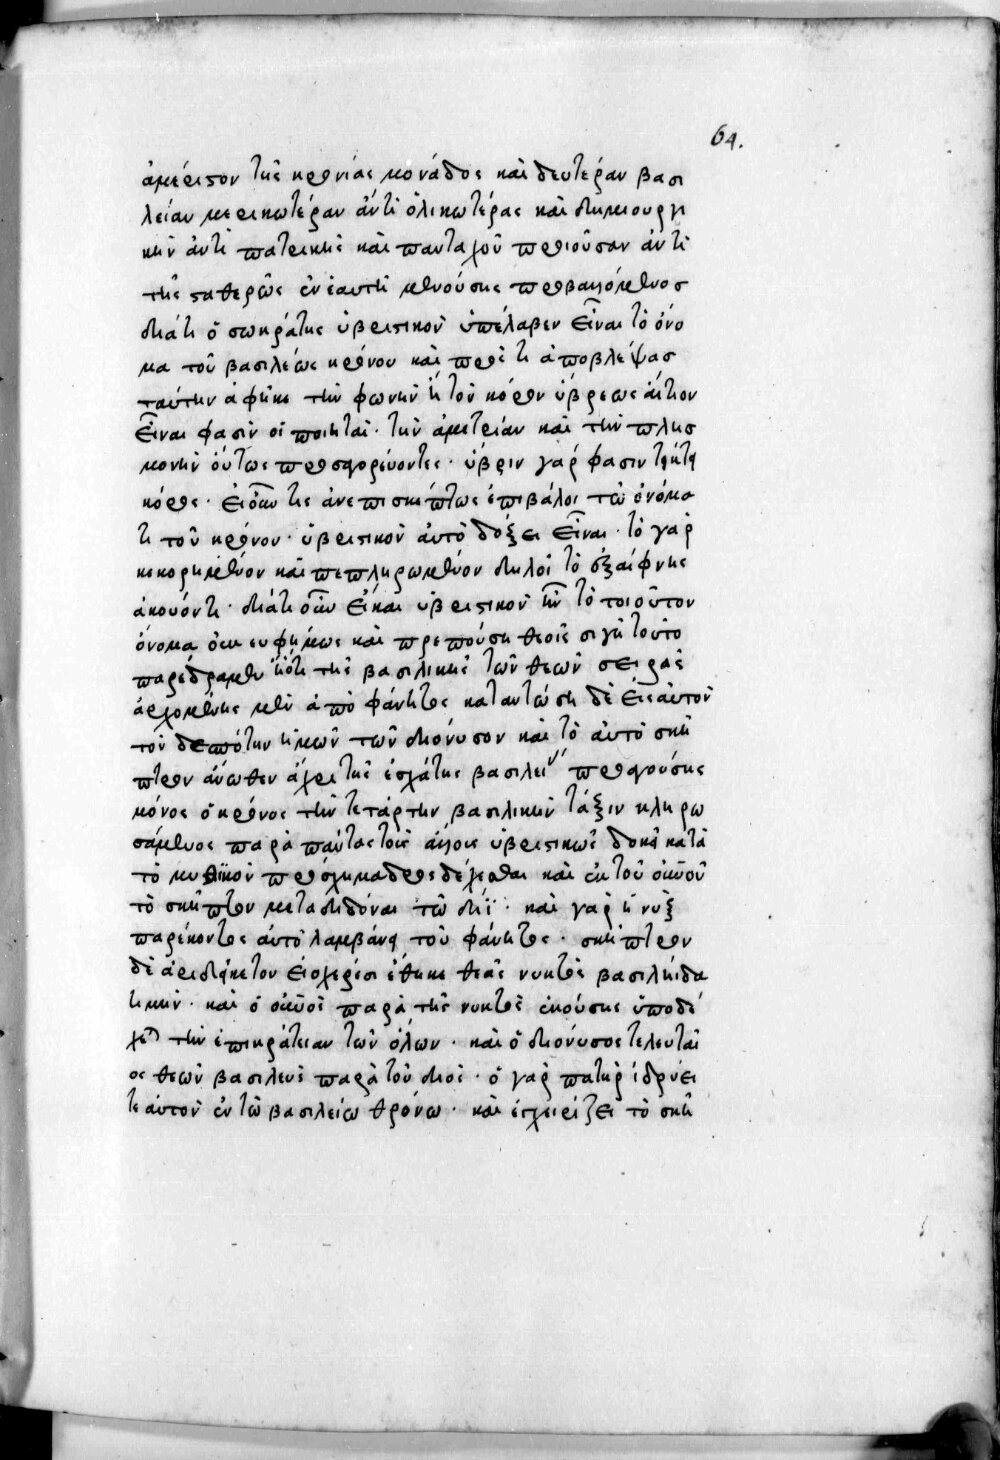 64.
ἀμέριστον τῆς κρονίας μονάδος καὶ δευτέραν βασι
λείαν μερικωτέραν ἀντὶ ὁλικωτέρας καὶ δημιουργι
κὴν ἀντὶ πατρικῆς καὶ πανταχοῦ προϊοῦσαν ἀντὶ
τῆς σταθερῶς ἐν ἑαυτῆ μενούσης προβαλλόμενος
διάτι ὁ σωκράτης ὑβριστικὸν ὑπέλαβεν εἶναι τὸ ὄνο
μα τοῦ βασιλέως κρόνου καὶ πρὸς τι ἀποβλέψας
ταύτην ἀφῆκε τὴν φωνὴν ἢ τὸν κόρον ὕβρεως αἴτιον
εἶναι φασὶν οἱ ποιηταί· τὴν ἀμετρίαν καὶ τὴν πλησ
μονὴν οὕτως προσαγορεύοντες· ὕβριν γάρ φασιν τίκτει
κόρος· εἰ οὖν τις ἀνεπισκέπτως ἐπιβάλοι τῶ ὀνόμα
τι τοῦ κρόνου· ὑβριστικὸν αὐτὸ δόξει εἶναι· τὸ γὰρ
κεκορημένον καὶ πεπληρωμένον δηλοῖ τὸ ἐξαίφνης
ἀκούοντι· διάτι οὖν εἴπερ ὑβριστικὸν ἦν τὸ τοιοῦτον
ὄνομα οὐκ εὐφήμως καὶ πρεπούση θεοῖς σιγῆ τοῦτο
παρέδραμεν ἢ ὅτι τῆς βασιλικῆς τῶν θεῶν σειρᾶς
ἀρχομένης μὲν ἀπὸ φάνητος καταντώση δὲ εἰς αὐτὸν
τὸν δεσπότην ἡμῶν τῶν διόνυσον καὶ τὸ αὐτὸ σκῆ
πτρον ἄνωθεν ἄχρι τῆς ἐσχάτης βασιλεί προαγούσης
μόνος ὁ κρόνος τὴν τετάρτην βασιλικὴν τάξιν κληρω
σάμενος παρὰ πάντας τοὺς ἄλλους ὑβριστικῶς δοκεῖ κατὰ
τὸ μυθικὸν πρόσχημα δέχεσθαι καὶ ἐκ τοῦ οὐνοῦ
τὸ σκῆπτρον μεταδιδόναι τῶ διΐ· καὶ γὰρ ἡ νὺξ
παρ' ἑκόντος αὐτὸ λαμβάνει τοῦ φάνητος· σκῆπτρον
δὲ ἀριδείκετον εἷο χερέσι ἔθηκε θεᾶς νυκτὸς βασιληΐδα
τιμήν· καὶ ὁ οὐνὸς παρὰ τῆς νυκτὸς ἑκούσης ὑποδέ
χεται τὴν ἐπικράτειαν τῶν ὅλων· καὶ ὁ διόνυσος τελευταῖ
ος θεῶν βασιλεὺς παρὰ τοῦ διός· ὁ γὰρ πατὴρ ἱδρύει
τε αὐτὸν ἐν τῶ βασιλείω θρόνω· καὶ ἐγχειρίζει τὸ σκῆ